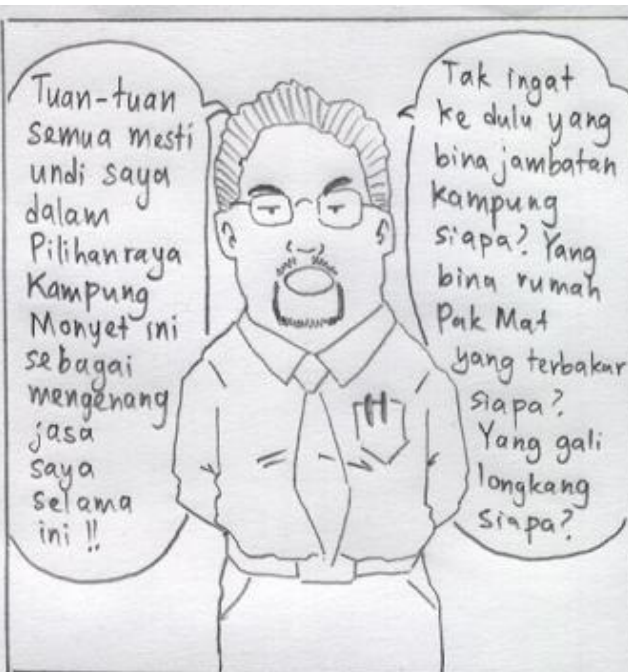 Tuan-tuan
semua mesti
undi saya
dalam
Pilihanraya
Kampung
Monyet ini
sebagai
mengenang
jasa
saya
selama
ini !!
Tak ingat
ke dulu yang
bina jambatan
kampung
siapa? Yang
bina rumah
Pak Mat
yang terbakar
siapa?
Yang gali
longkang
siapa?